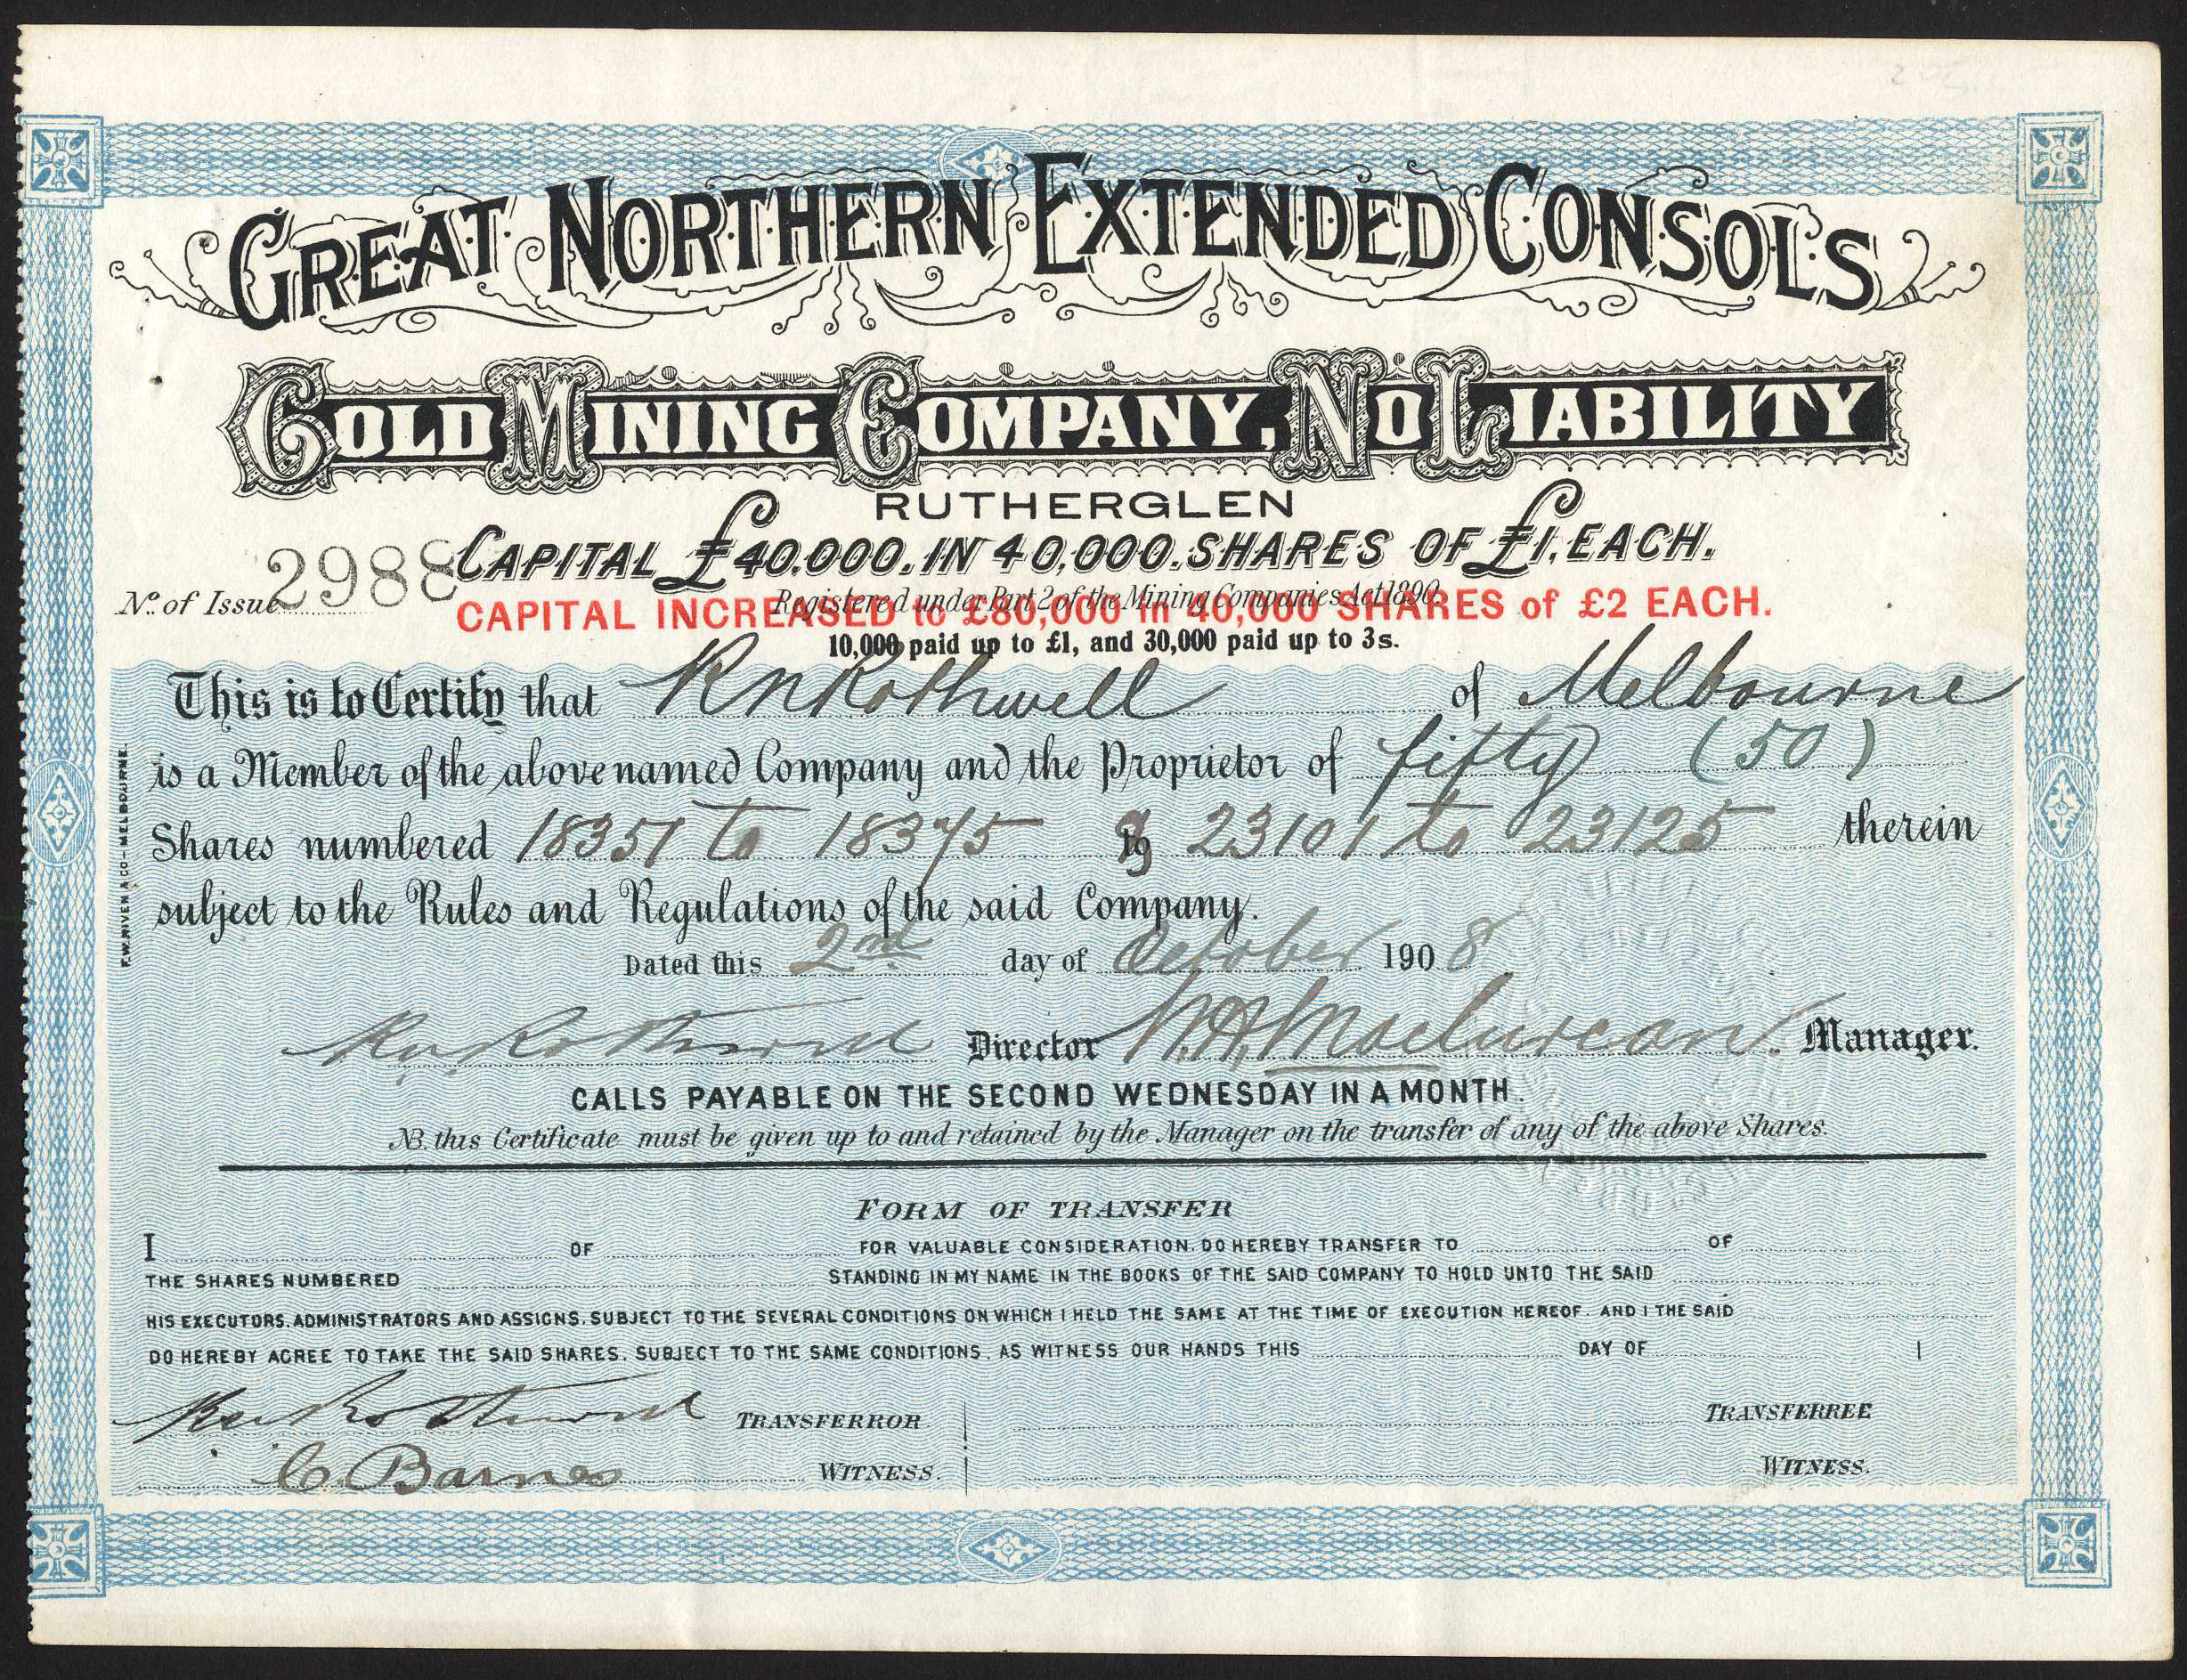 GREAT NORTHERN EXTENDED CONSOLS
GOLD MINING COMPANY, NO LIABILITY
RUTHERGLEN
CAPITAL £40,000. IN 40,000. SHARES OF £1. EACH.
No. of Issue 2988
Registered under Part 2 of the Mining Companies Act 1890.
CAPITAL INCREASED to £80,000 in 40,000 SHARES of £2 EACH.
10,000 paid up to £1, and 30,000 paid up to 3s.
This is to Certify that R N Rothwell of Melbourne
is a Member of the above named Company and the Proprietor of fifty (50)
Shares numbered 18351 to 18375 to 23101 to 23125 therein
subject to the Rules and Regulations of the said Company.
Dated this 2nd day of October 1908
Rothwell Director W.A. Maclurcan Manager.
CALLS PAYABLE ON THE SECOND WEDNESDAY IN A MONTH.
NB. this Certificate must be given up to and retained by the Manager on the transfer of any of the above Shares.
FORM OF TRANSFER
I OF FOR VALUABLE CONSIDERATION. DO HEREBY TRANSFER TO OF
THE SHARES NUMBERED STANDING IN MY NAME IN THE BOOKS OF THE SAID COMPANY TO HOLD UNTO THE SAID
HIS EXECUTORS. ADMINISTRATORS AND ASSIGNS. SUBJECT TO THE SEVERAL CONDITIONS ON WHICH I HELD THE SAME AT THE TIME OF EXECUTION HEREOF. AND I THE SAID
DO HEREBY AGREE TO TAKE THE SAID SHARES. SUBJECT TO THE SAME CONDITIONS. AS WITNESS OUR HANDS THIS DAY OF 1
Rothwell TRANSFERROR TRANSFERREE
C. Barnes WITNESS. WITNESS.
F.W. NIVEN & CO– MELBOURNE.